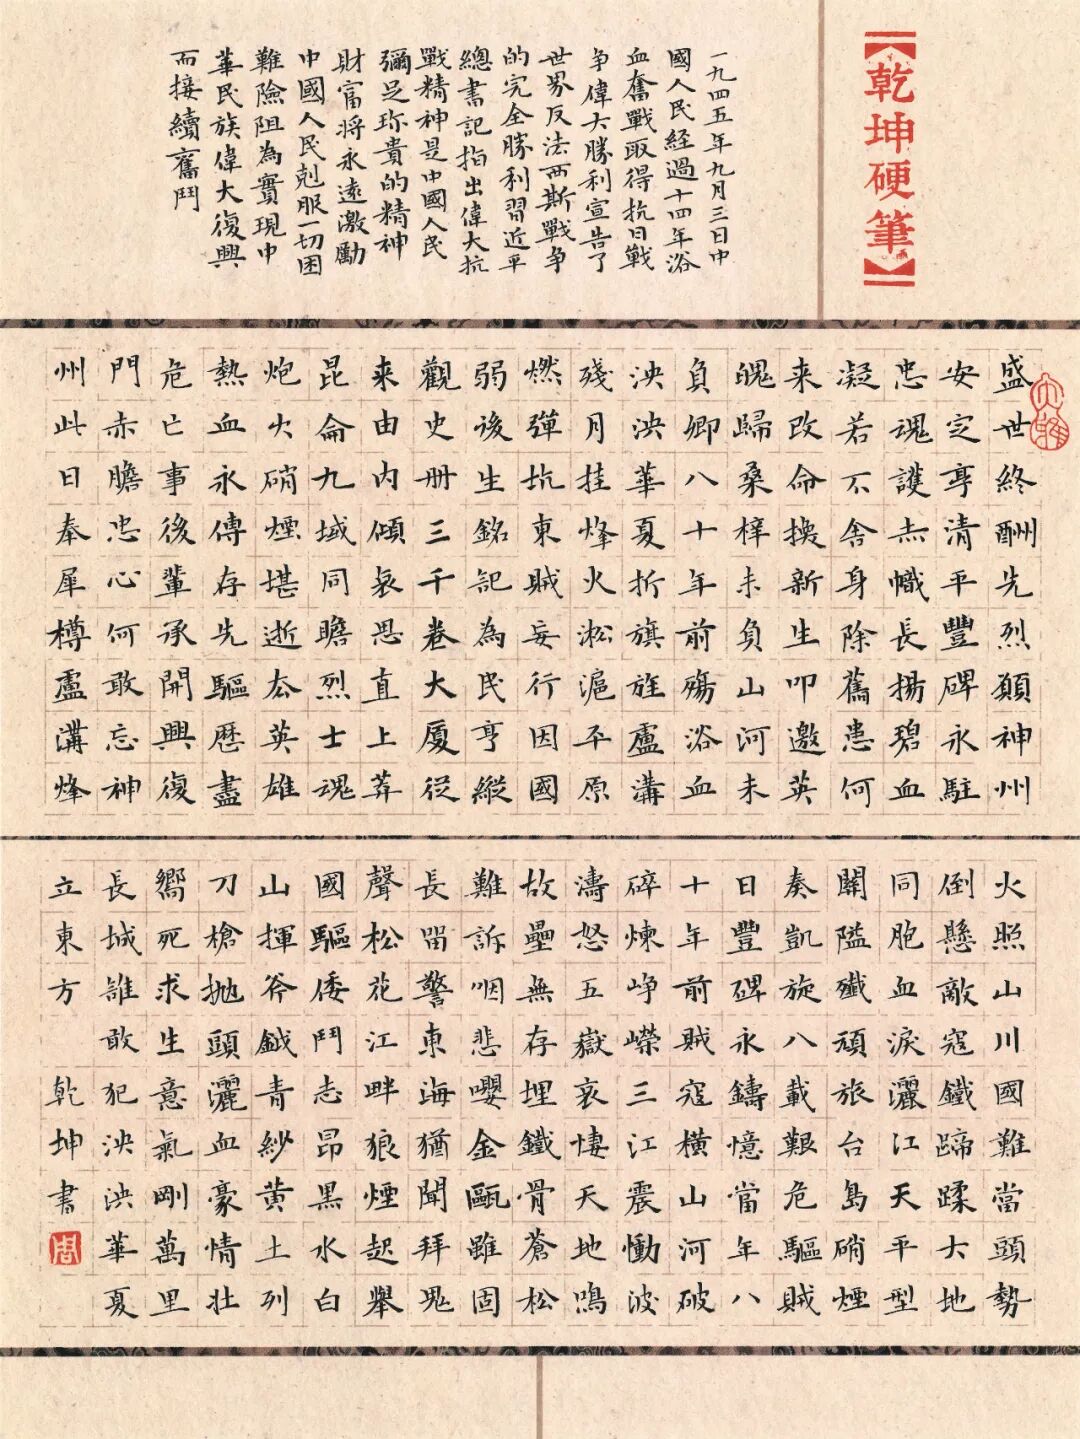 【乾坤硬筆】
一九四五年九月三日中
國人民經過十四年浴
血奮戰取得抗日戰
争偉大勝利宣告了
世界反法西斯戰争
的完全勝利習近平
總書記指出偉大抗
戰精神是中國人民
彌足珎貴的精神
財富将永遠激勵
中國人民剋服一切困
難險阻為實現中
華民族偉大復興
而接續奮鬥
大雅
盛世終酬先烈願神州
安定享清平豐碑永駐
忠魂護赤幟長揚碧血
凝若不舍身除舊患何
来改命換新生叩邀英
魄歸桑梓未負山河未
負卿八十年前殤浴血
泱泱華夏折旗旌盧溝
殘月挂烽火淞滬平原
燃彈坑東賊妄行因國
弱後生銘記為民亨縱
觀史册三千卷大廈從
来由内傾哀思直上葬
昆侖九域同瞻烈士魂
炮火硝煙堪逝去英雄
熱血永傳存先驅歷盡
危亡事後輩承開興復
門赤膽忠心何敢忘神
州此日奉犀樽盧溝烽
火照山川國難當頭勢
倒懸敵寇鐵蹄蹂大地
同胞血淚灑江天平型
關隘殲頑旅台島硝煙
奏凱旋八載艱危驅賊
日豐碑永鑄憶當年八
十年前賊寇横山河破
碎煉峥嶸三江震慟波
濤怒五嶽哀悽天地鳴
故壘無存埋鐵骨蒼松
難訴咽悲嚶金甌雖固
長留警東海猶聞拜鬼
聲松花江畔狼煙起舉
國驅倭鬥志昂黑水白
山揮斧鉞青紗黄土列
刀槍抛頭灑血豪情壮
嚮死求生意氣剛萬里
長城誰敢犯泱泱華夏
立東方 乾坤書
周